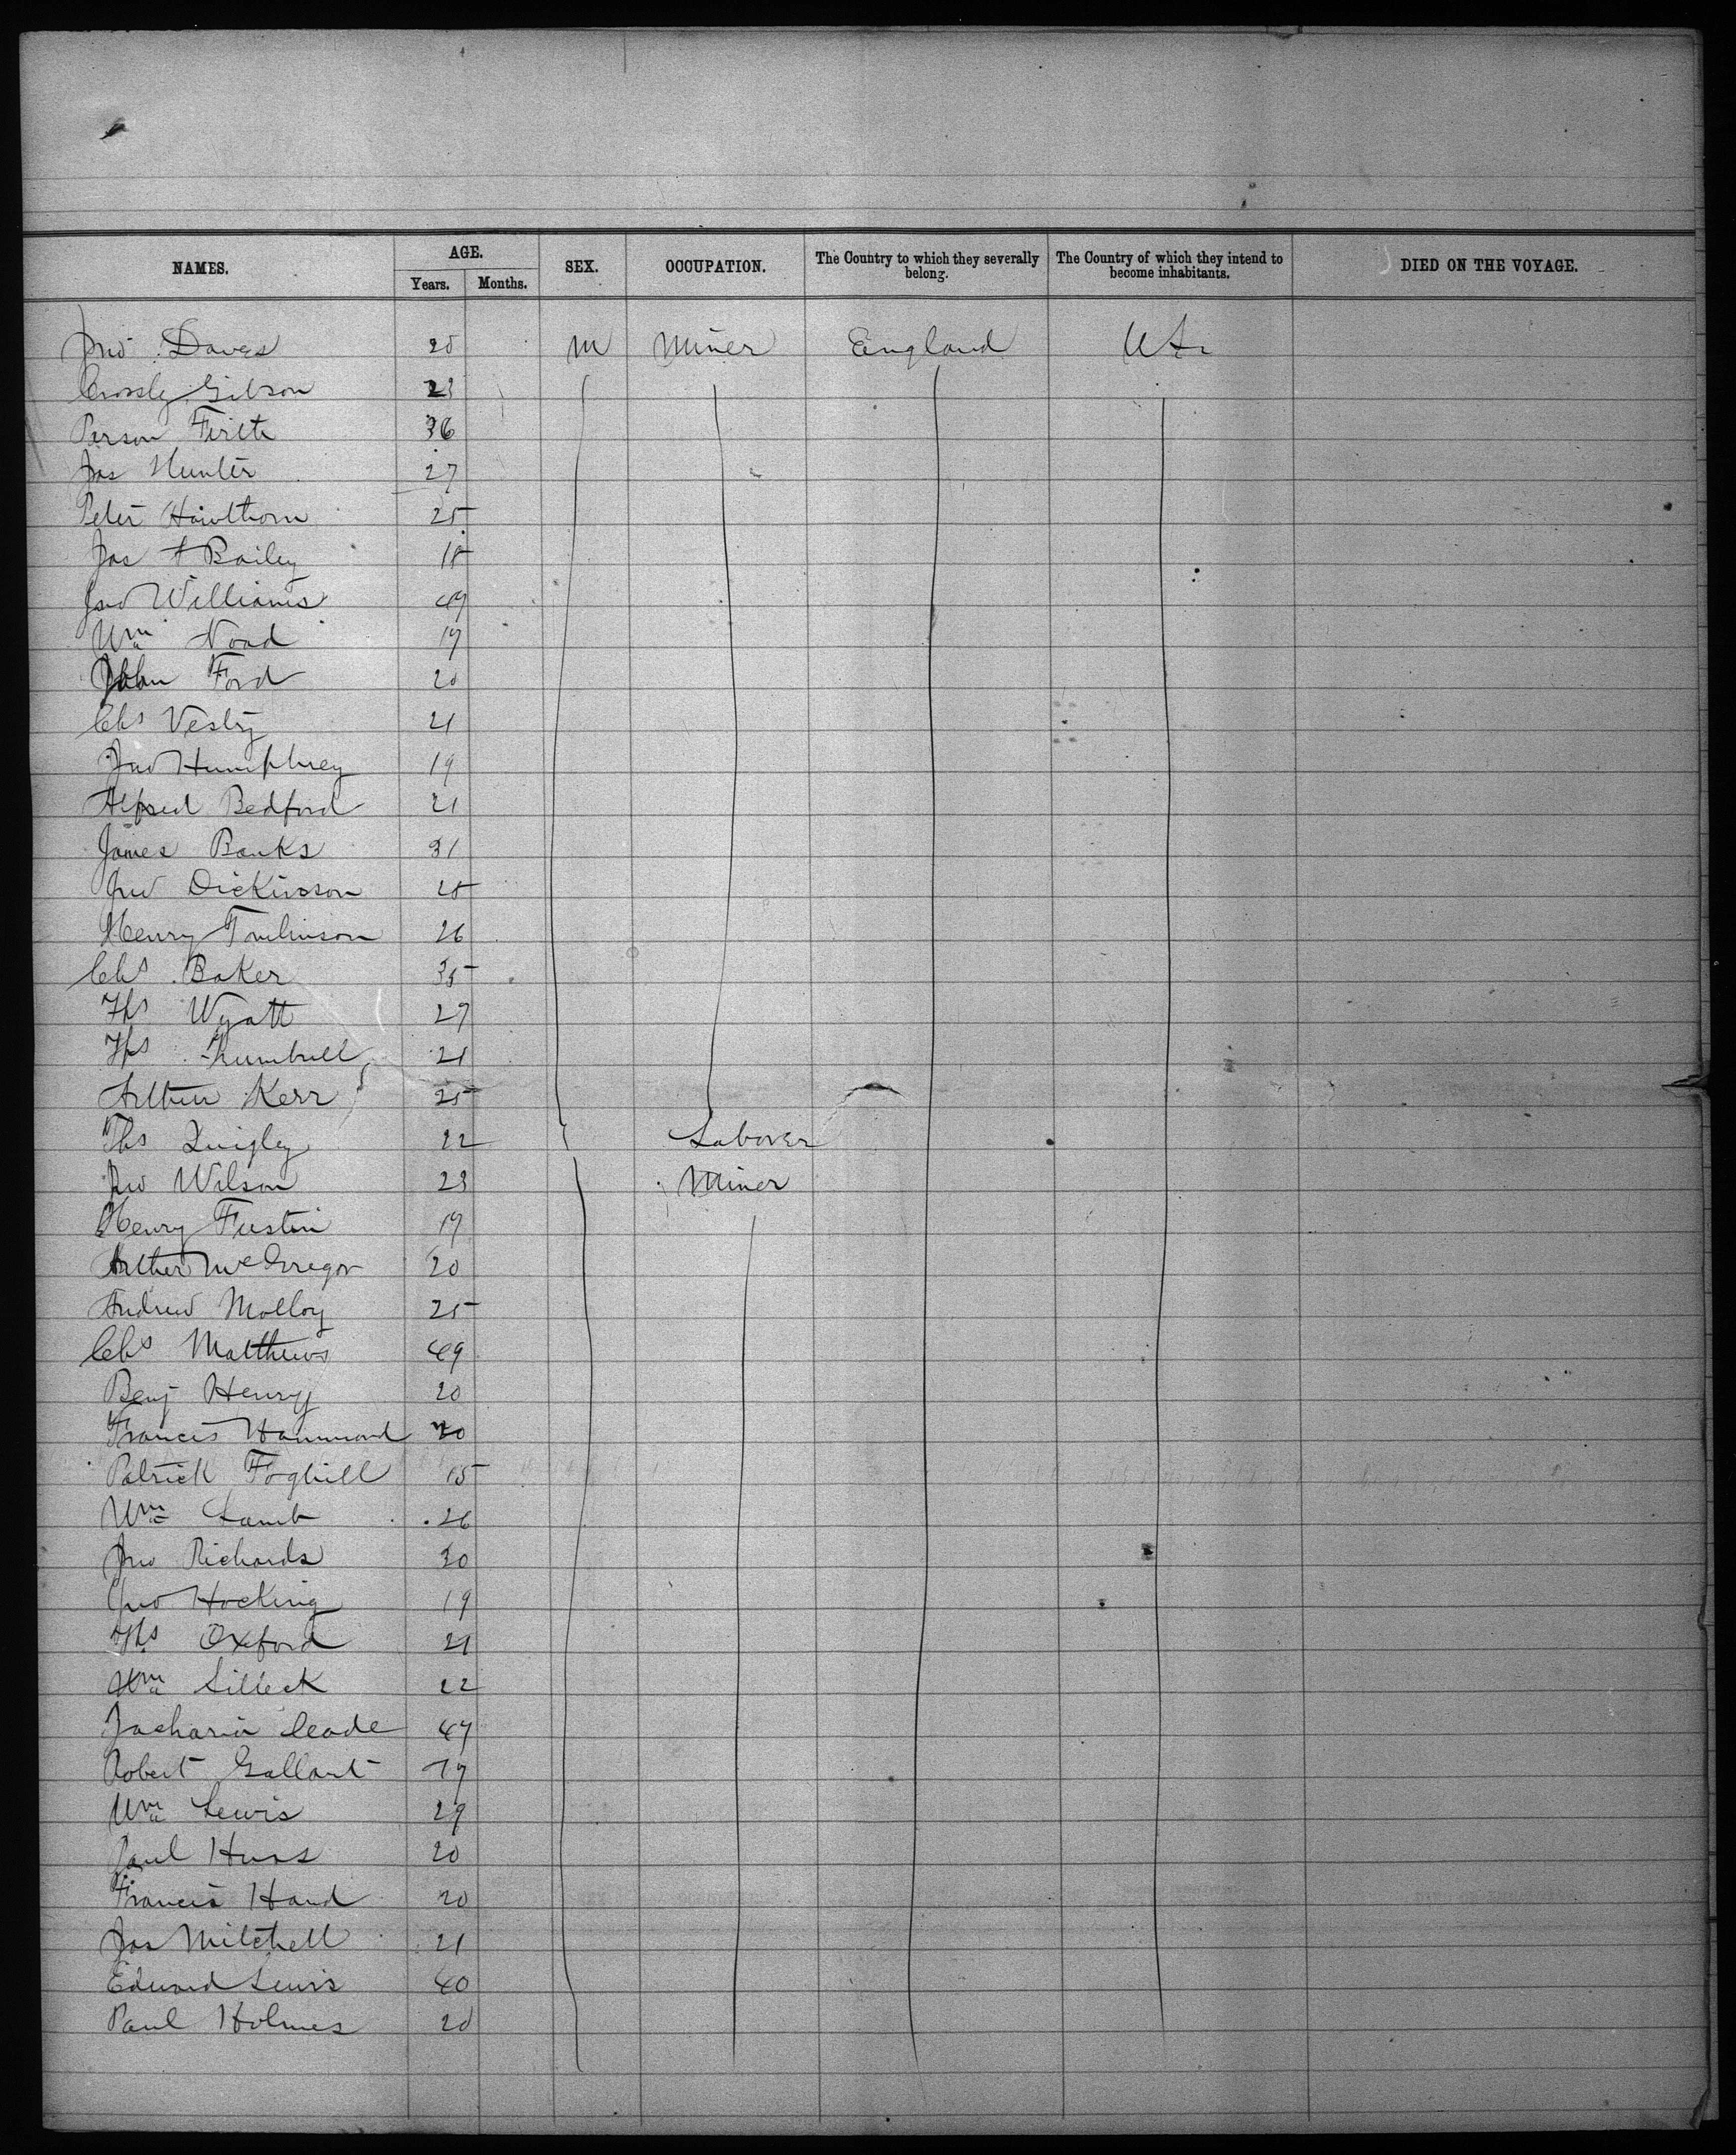 NAMES. AGE. SEX. OCCUPATION. The Country to which they severally belong. The Country of which they intend to become inhabitants. DIED ON THE VOYAGE.
Years. Months.
Jno Daves 20 M Miner England U.S.
Crossly Gibson 23
Parson Firth 36
Jas Hunter 27
Peter Hawthorn 25
Jas A Bailey 18
Jno Williams 49
Wm Noad 19
John Ford 20
Chs Vestry 21
Jno Humphrey 19
Alfred Bedford 21
James Banks 31
Jno Dickinson 25
Henry Tomlinson 26
Chs Baker 35
Ths Wyatt 27
Ths Trumbull 21
Arthur Kerr 25
Ths Quigley 22 Laborer
Jno Wilson 23 Miner
Henry Fustin 19
Arther McGregor 20
Andrew Molloy 25
Chs Matthews 49
Benj Henry 20
Francis Hammond 20
Patrick Foghill 15
Wm Lamb 26
Jno Richards 20
Jno Hocking 19
Ths Oxford 21
Wm Silleck 22
Zacharia Ceade 47
Robert Gallant 19
Wm Lewis 29
Paul Huss 20
Francis Hand 20
Jas Mitchell 21
Edward Lewis 40
Paul Holmes 20